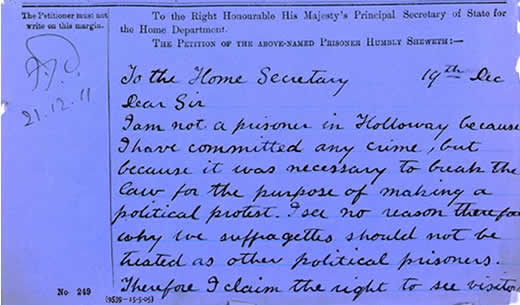 The Petitioner must not
write on this margin.
To the Right Honourable His Majesty's Principal Secretary of State for
the Home Department.
THE PETITION OF THE ABOVE-NAMED PRISONER HUMBLY SHEWETH:—
21.12.11
To the Home Secretary 19th Dec
Dear Sir
I am not a prisoner in Holloway because
I have committed any crime, but
because it was necessary to break the
law for the purpose of making a
political protest. I see no reason therefo
why we suffragettes should not be
treated as other political prisoners.
Therefore I claim the right to see visito
No 249
(9539—15-5-05)